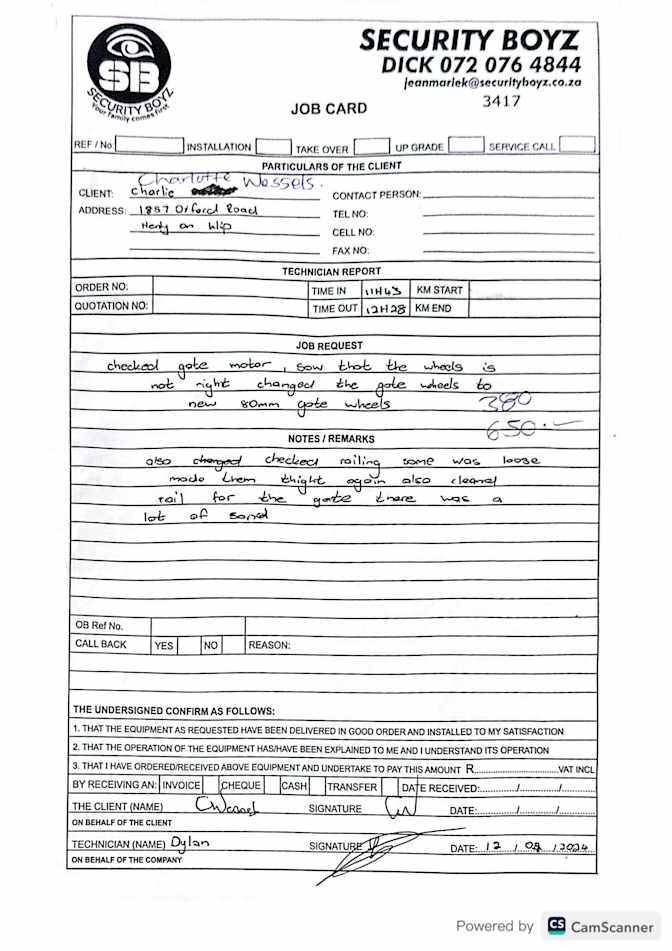 SB
SECURITY BOYZ
Your family comes first
SECURITY BOYZ
DICK 072 076 4844
jeanmariek@securityboyz.co.za
JOB CARD
3417
REF / No
INSTALLATION
TAKE OVER
UP GRADE
SERVICE CALL
PARTICULARS OF THE CLIENT
Charlotte Wessels.
CLIENT: Charlie
CONTACT PERSON:
ADDRESS: 1857 Oxford Road
TEL NO:
on Klip
CELL NO:
FAX NO:
TECHNICIAN REPORT
ORDER NO:
TIME IN 11H43 KM START
QUOTATION NO:
TIME OUT 12H28 KM END
JOB REQUEST
checked gate motor, saw that the wheels is
not right changed the gate wheels to
new 80mm gate wheels 380
650.-
NOTES / REMARKS
also changed checked railing some was loose
made them thight again also cleaned
rail for the gate there was a
lot of sand
OB Ref No.
CALL BACK YES NO REASON:
THE UNDERSIGNED CONFIRM AS FOLLOWS:
1. THAT THE EQUIPMENT AS REQUESTED HAVE BEEN DELIVERED IN GOOD ORDER AND INSTALLED TO MY SATISFACTION
2. THAT THE OPERATION OF THE EQUIPMENT HAS/HAVE BEEN EXPLAINED TO ME AND I UNDERSTAND ITS OPERATION
3. THAT I HAVE ORDERED/RECEIVED ABOVE EQUIPMENT AND UNDERTAKE TO PAY THIS AMOUNT R..............................VAT INCL
BY RECEIVING AN: INVOICE CHEQUE CASH TRANSFER DATE RECEIVED:........../........../..........
THE CLIENT (NAME) CWessels SIGNATURE DATE:........../........../..........
ON BEHALF OF THE CLIENT
TECHNICIAN (NAME) Dylan SIGNATURE DATE: 12 / 08 / 2024
ON BEHALF OF THE COMPANY
Powered by CS CamScanner